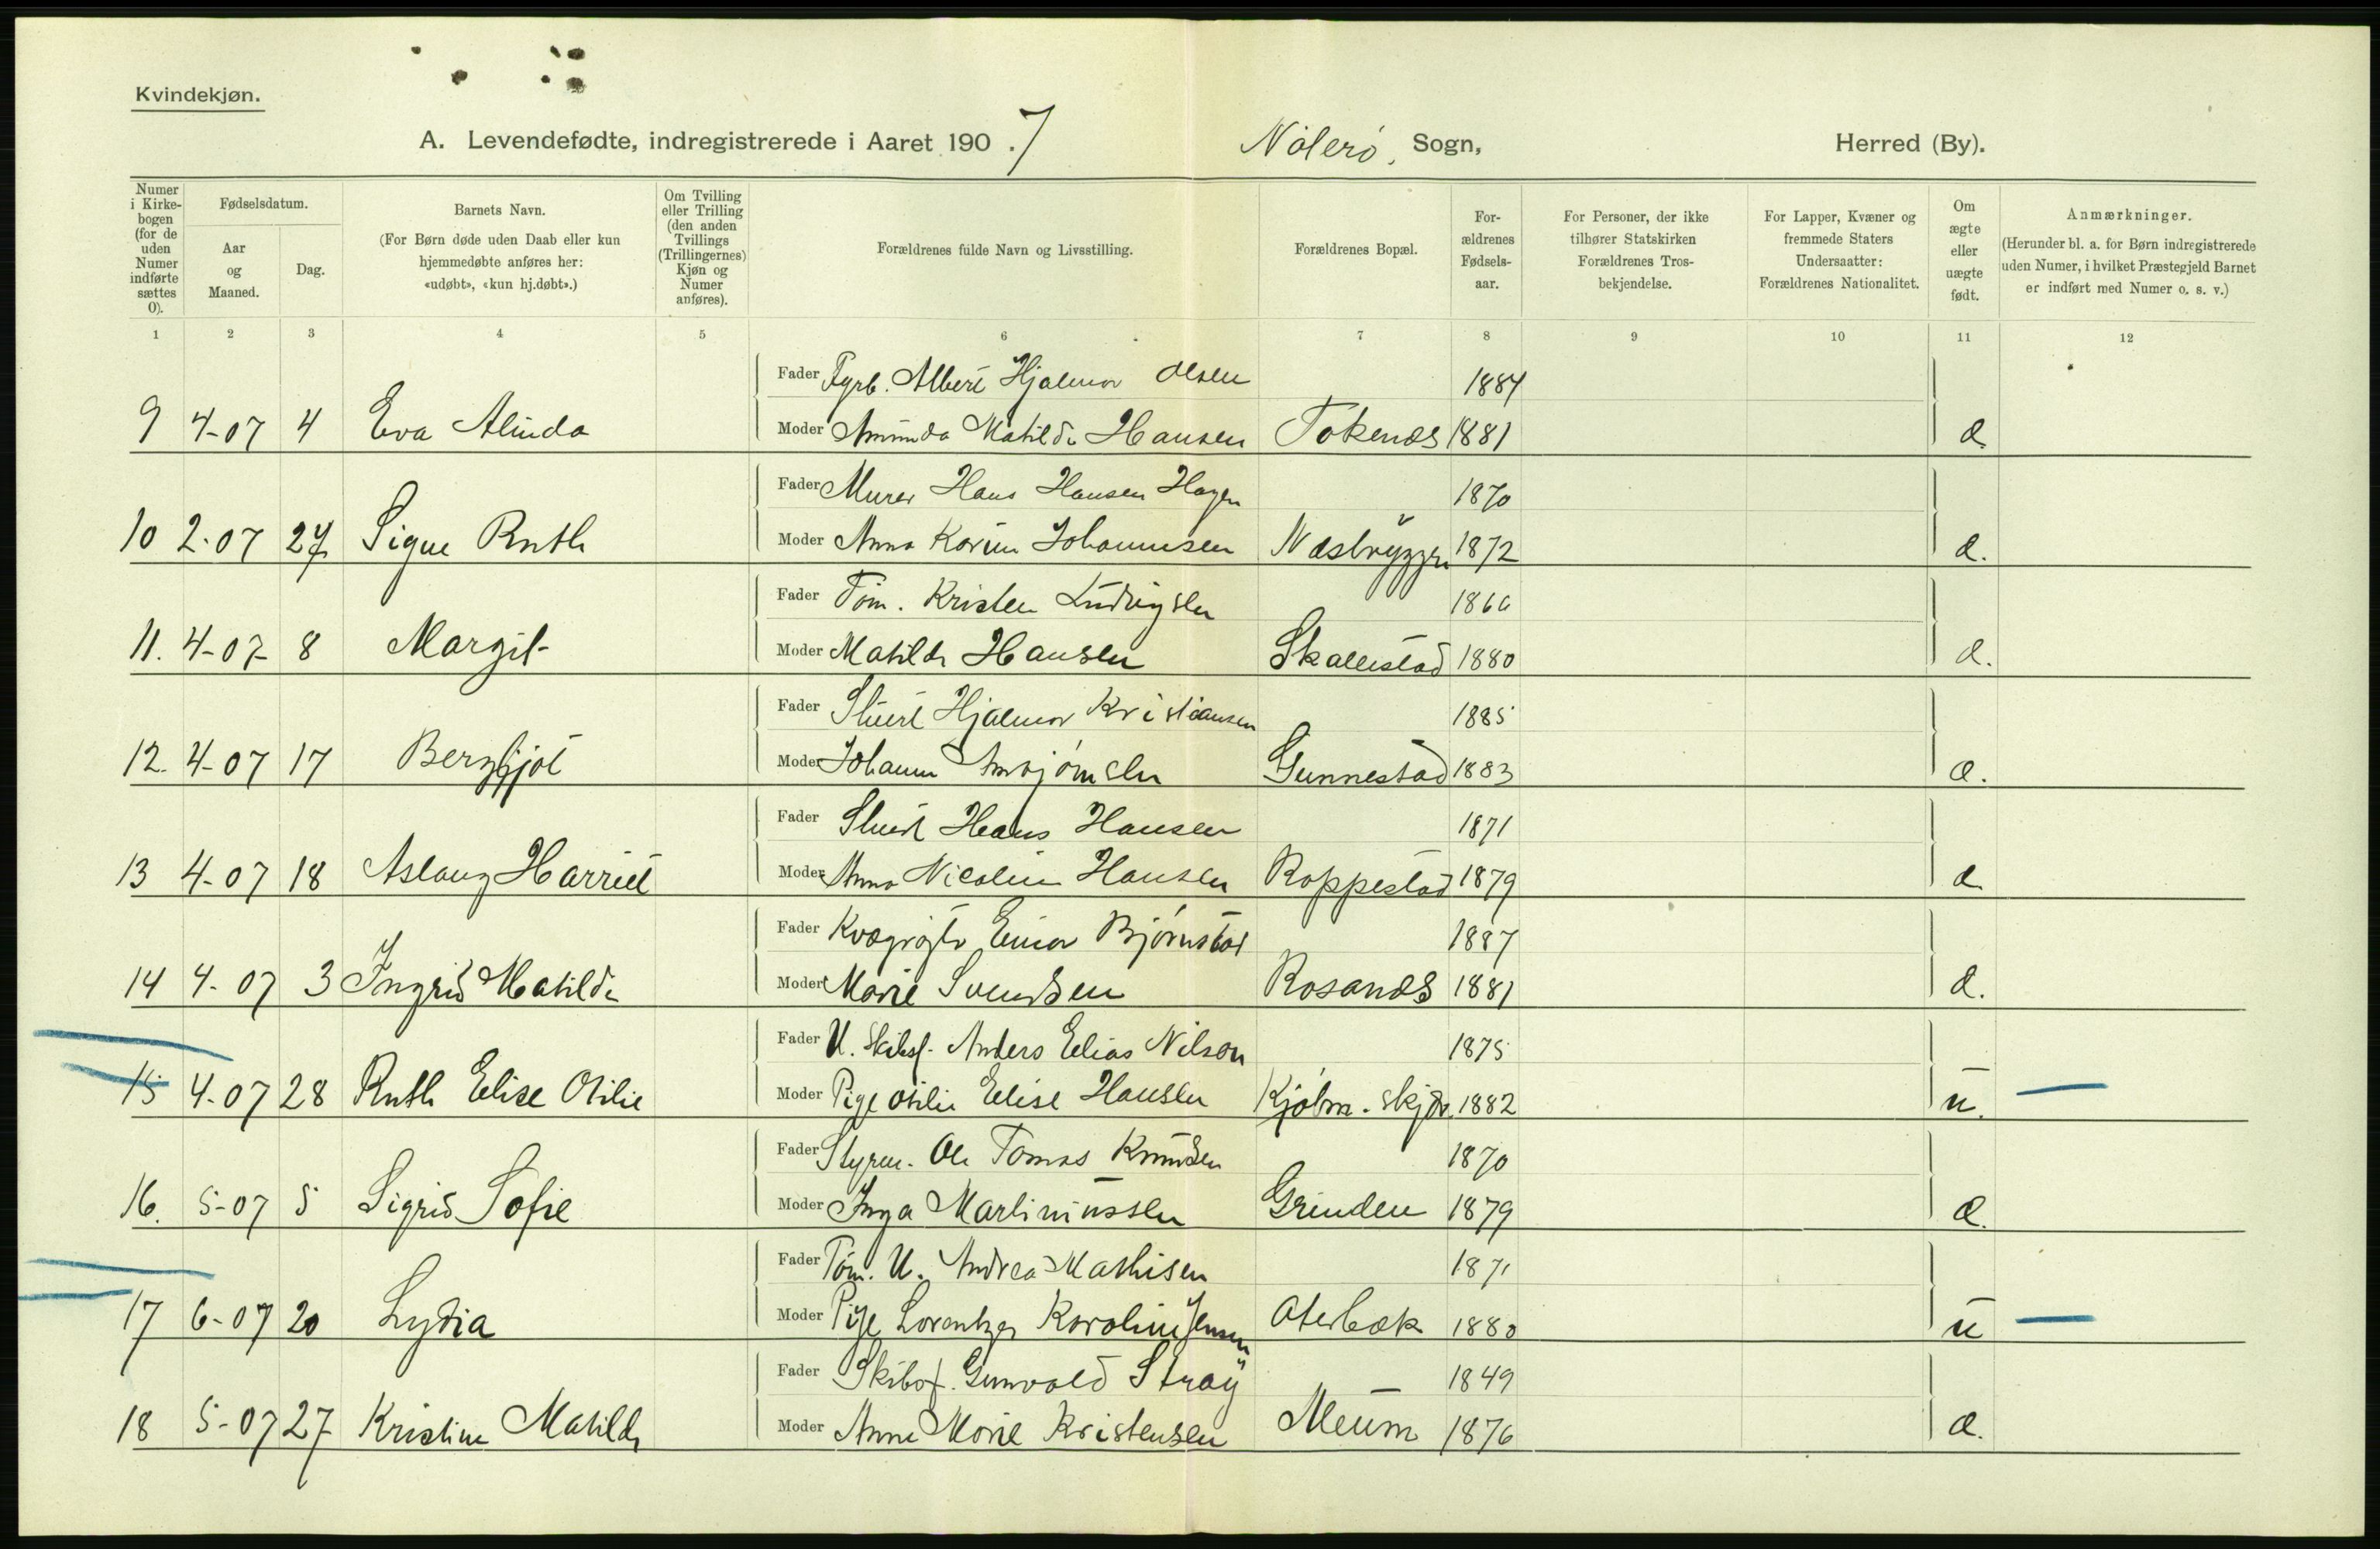 Kvindekjøn.
A. Levendefødte, indregistrerede i Aaret 1907 Nøterø. Sogn, Herred (By).
Numer i Kirkebogen (for de uden Numer indførte sættes 0).
Fødselsdatum.
Aar og Maaned.
Dag.
Barnets Navn.
(For Børn døde uden Daab eller kun hjemmedøbte anføres her: «udøbt», «kun hj.døbt».)
Om Tvilling eller Trilling (den anden Tvillings (Trillingernes) Kjøn og Numer anføres).
Forældrenes fulde Navn og Livsstilling.
Forældrenes Bopæl.
Forældrenes Fødselsaar.
For Personer, der ikke tilhører Statskirken Forældrenes Trosbekjendelse.
For Lapper, Kvæner og fremmede Staters Undersaatter: Forældrenes Nationalitet.
Om ægte eller uægte født.
Anmærkninger.
(Herunder bl. a. for Børn indregistrerede uden Numer, i hvilket Præstegjeld Barnet er indført med Numer o. s. v.)
1 2 3 4 5 6 7 8 9 10 11 12
Fader Fyrb. Albert Hjalmar Olsen 1884
9 4-07 4 Eva Alinda Moder Amunda Matilde Hansen 1881 æ
Fader Murer Hans Hansen Hagen 1870
10 2-07 27 Signe Ruth Moder Anna Karine Johannesen Næsbryggen 1872 æ.
Fader Tøm. Kristen Ludvigsen
11. 4-07 8 Margit Moder Matilde Hansen Skallestad 1880 æ.
Fader Stuert Hjalmar Kristiansen 1885
12. 4-07 17 Bergljot Moder Johanne Gunnestad 1883 æ.
Fader Stuert Hans Hansen 1871
13 4-07 18 Aslaug Harriet Moder Anna Nicoline Hansen Roppestad 1879 æ
Fader Kvægrøgter Einar Bjørnstad 1887
14 4-07 3 Ingrid Matilde Moder Marie Svendsen Rosanes 1881 æ.
Fader U. Skibsf. Anders Elias Nilson 1875
15 4-07 28 Ruth Elise Otilie Moder Pige Otilie Elise Hansen 1882 u. —
Fader Styrm. Ole Tomas Knudsen 1870
16. 5-07 5 Sigrid Sofie Moder Inga Martiniussen Grinden 1879 æ.
Fader Tøm. U. Andrea Mathisen 1871
17 6-07 20 Lydia Moder Pige Lorentze Karoline Jensen Oterbæk 1880 u —
Fader Skibsf. Gunvald Stray 1849
18 5-07 27 Kristine Matilde Moder Anne Marie Kristensen Meum 1876 æ.